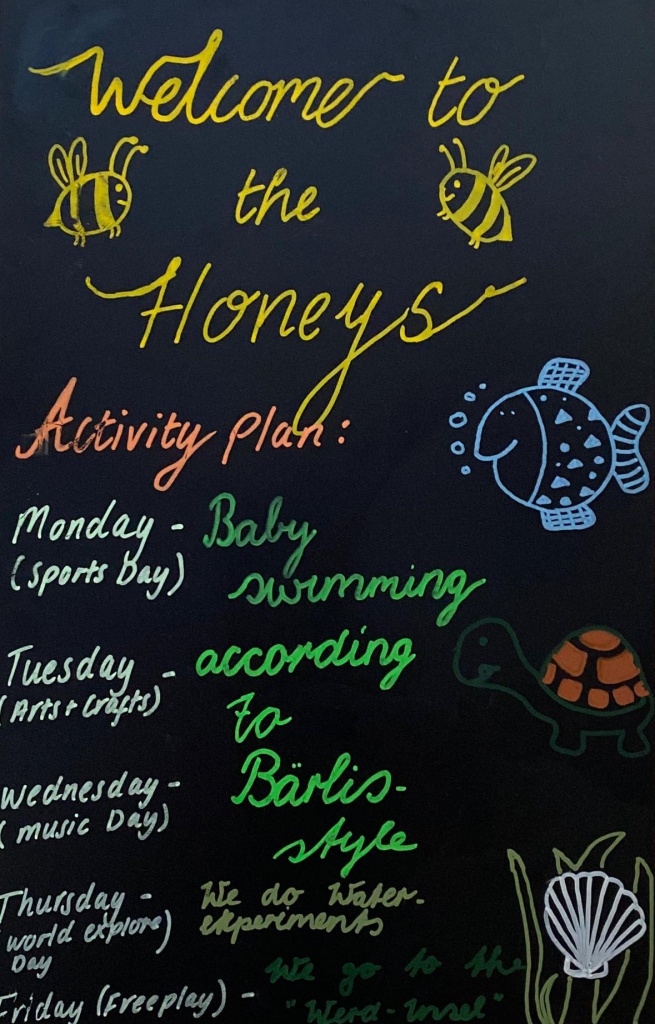 Welcome to
the
Honeys
Activity Plan:
Monday - Baby
(Sports Day) swimming
Tuesday - according
(Arts + Crafts) to
Wednesday - Bärlis-
(music Day) style
Thursday - We do Water-
(world explore) experiments
Day
We go to the
Friday (Freeplay) - "Werd-Insel"